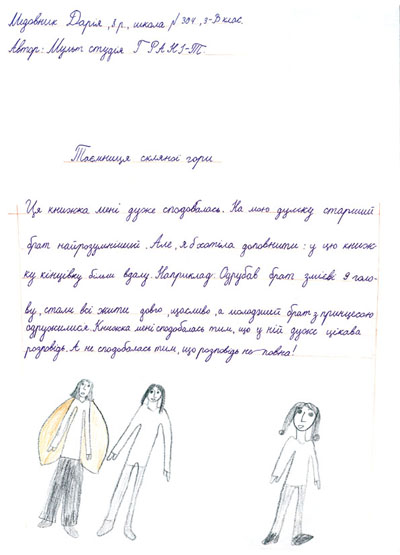 Медовник Дарія, 8 р., школа №304, 3-В клас.
Автор: Мульт студія ГРАНІ-Т
Таємниця скляної гори
Ця книжка мені дуже сподобалась. На мою думку старший
брат найрозумніший. Але, я б хотіла доповнити: у цю книж-
ку кінцівку більш вдалу. Наприклад: Одрубав брат змієві 9 голо-
ву, стали всі жити довго, щасливо, а молодший брат з принцесою
одружилися. Книжка мені сподобалась тим, що у ній дуже цікава
розповідь. А не сподобалась тим, що розповідь не повна!